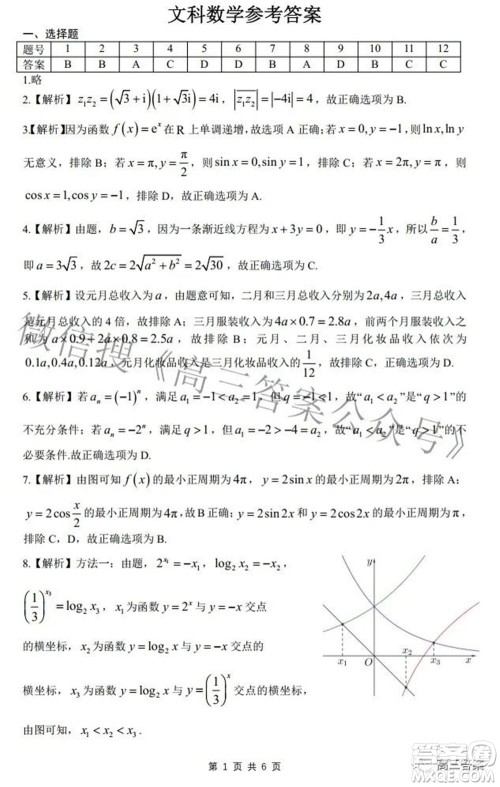 文科数学参考答案
一、选择题
题号 1 2 3 4 5 6 7 8 9 10 11 12
答案 B B A C D D B A C D A C
1.略
2.【解析】z₁z₂=(√3+i)(1+√3i)=4i，|z₁z₂|=|-4i|=4，故正确选项为 B.
3.【解析】因为函数 f(x)=eˣ 在 R 上单调递增，故选项 A 正确；若 x=0, y=-1，则 ln x, ln y
无意义，排除 B；若 x=π, y=π/2，则 sin x=0, sin y=1，排除 C；若 x=2π, y=π，则
cos x=1, cos y=-1，排除 D，故正确选项为 A.
4.【解析】由题，b=√3，因为一条渐近线方程为 x+3y=0，即 y=-1/3 x，所以 b/a=1/3，
即 a=3√3，故 2c=2√(a²+b²)=2√30，故正确选项为 C.
5.【解析】设元月总收入为 a，由题意可知，二月和三月总收入分别为 2a,4a，三月总收入
是元月总收入的 4 倍，故排除 A；三月服装收入为 4a×0.7=2.8a，前两个月服装收入为
a×0.9+2a×0.8=2.5a，故排除 B；元月、二月、三月化妆品收入依次为
0.1a,0.4a,0.12a，元月化妆品收入是三月化妆品收入的 1/12，
故排除 C，故正确选项为 D.
6.【解析】若 aₙ=(-1)ⁿ，满足 a₁=-1<a₂=1，但 q=-1<1，故“a₁<a₂”是“q>1”的
不充分条件；若 aₙ=-2ⁿ，满足 q>1，但 a₁=-2>-4=a₂，故“a₁<a₂”是“q>1”的不必
要条件.故选 D.
7.【解析】由图可知 f(x) 的最小正周期为 4π，y=2sin x 的最小正周期为 2π，排除 A；
y=2cos x/2 的最小正周期为 4π，故 B 正确；y=2sin2x 和 y=2cos2x 的最小正周期为π，
排除 C、D，故正确选项为 B.
8.【解析】方法一：由题，2^x₁=-x₁，log₂x₂=-x₂，
(1/3)^x₃=log₂x₃，x₁ 为函数 y=2ˣ 与 y=-x 交点
的横坐标，x₂ 为函数 y=log₂x 与 y=-x 交点的
横坐标，x₃ 为函数 y=log₂x 与 y=(1/3)ˣ 交点的横坐标，
由图可知，x₁<x₂<x₃.
y
x₁ O x₂ x₃ x
微信搜《高三答案公众号》
第 1 页 共 6 页
高三答案